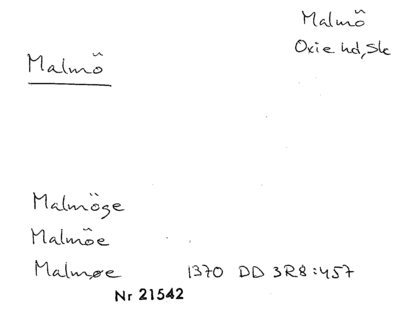 Malmö
Oxie hd, Sk
Malmö
Malmöge
Malmöe
Malmøe 1370 DD 3R8:457
Nr 21542